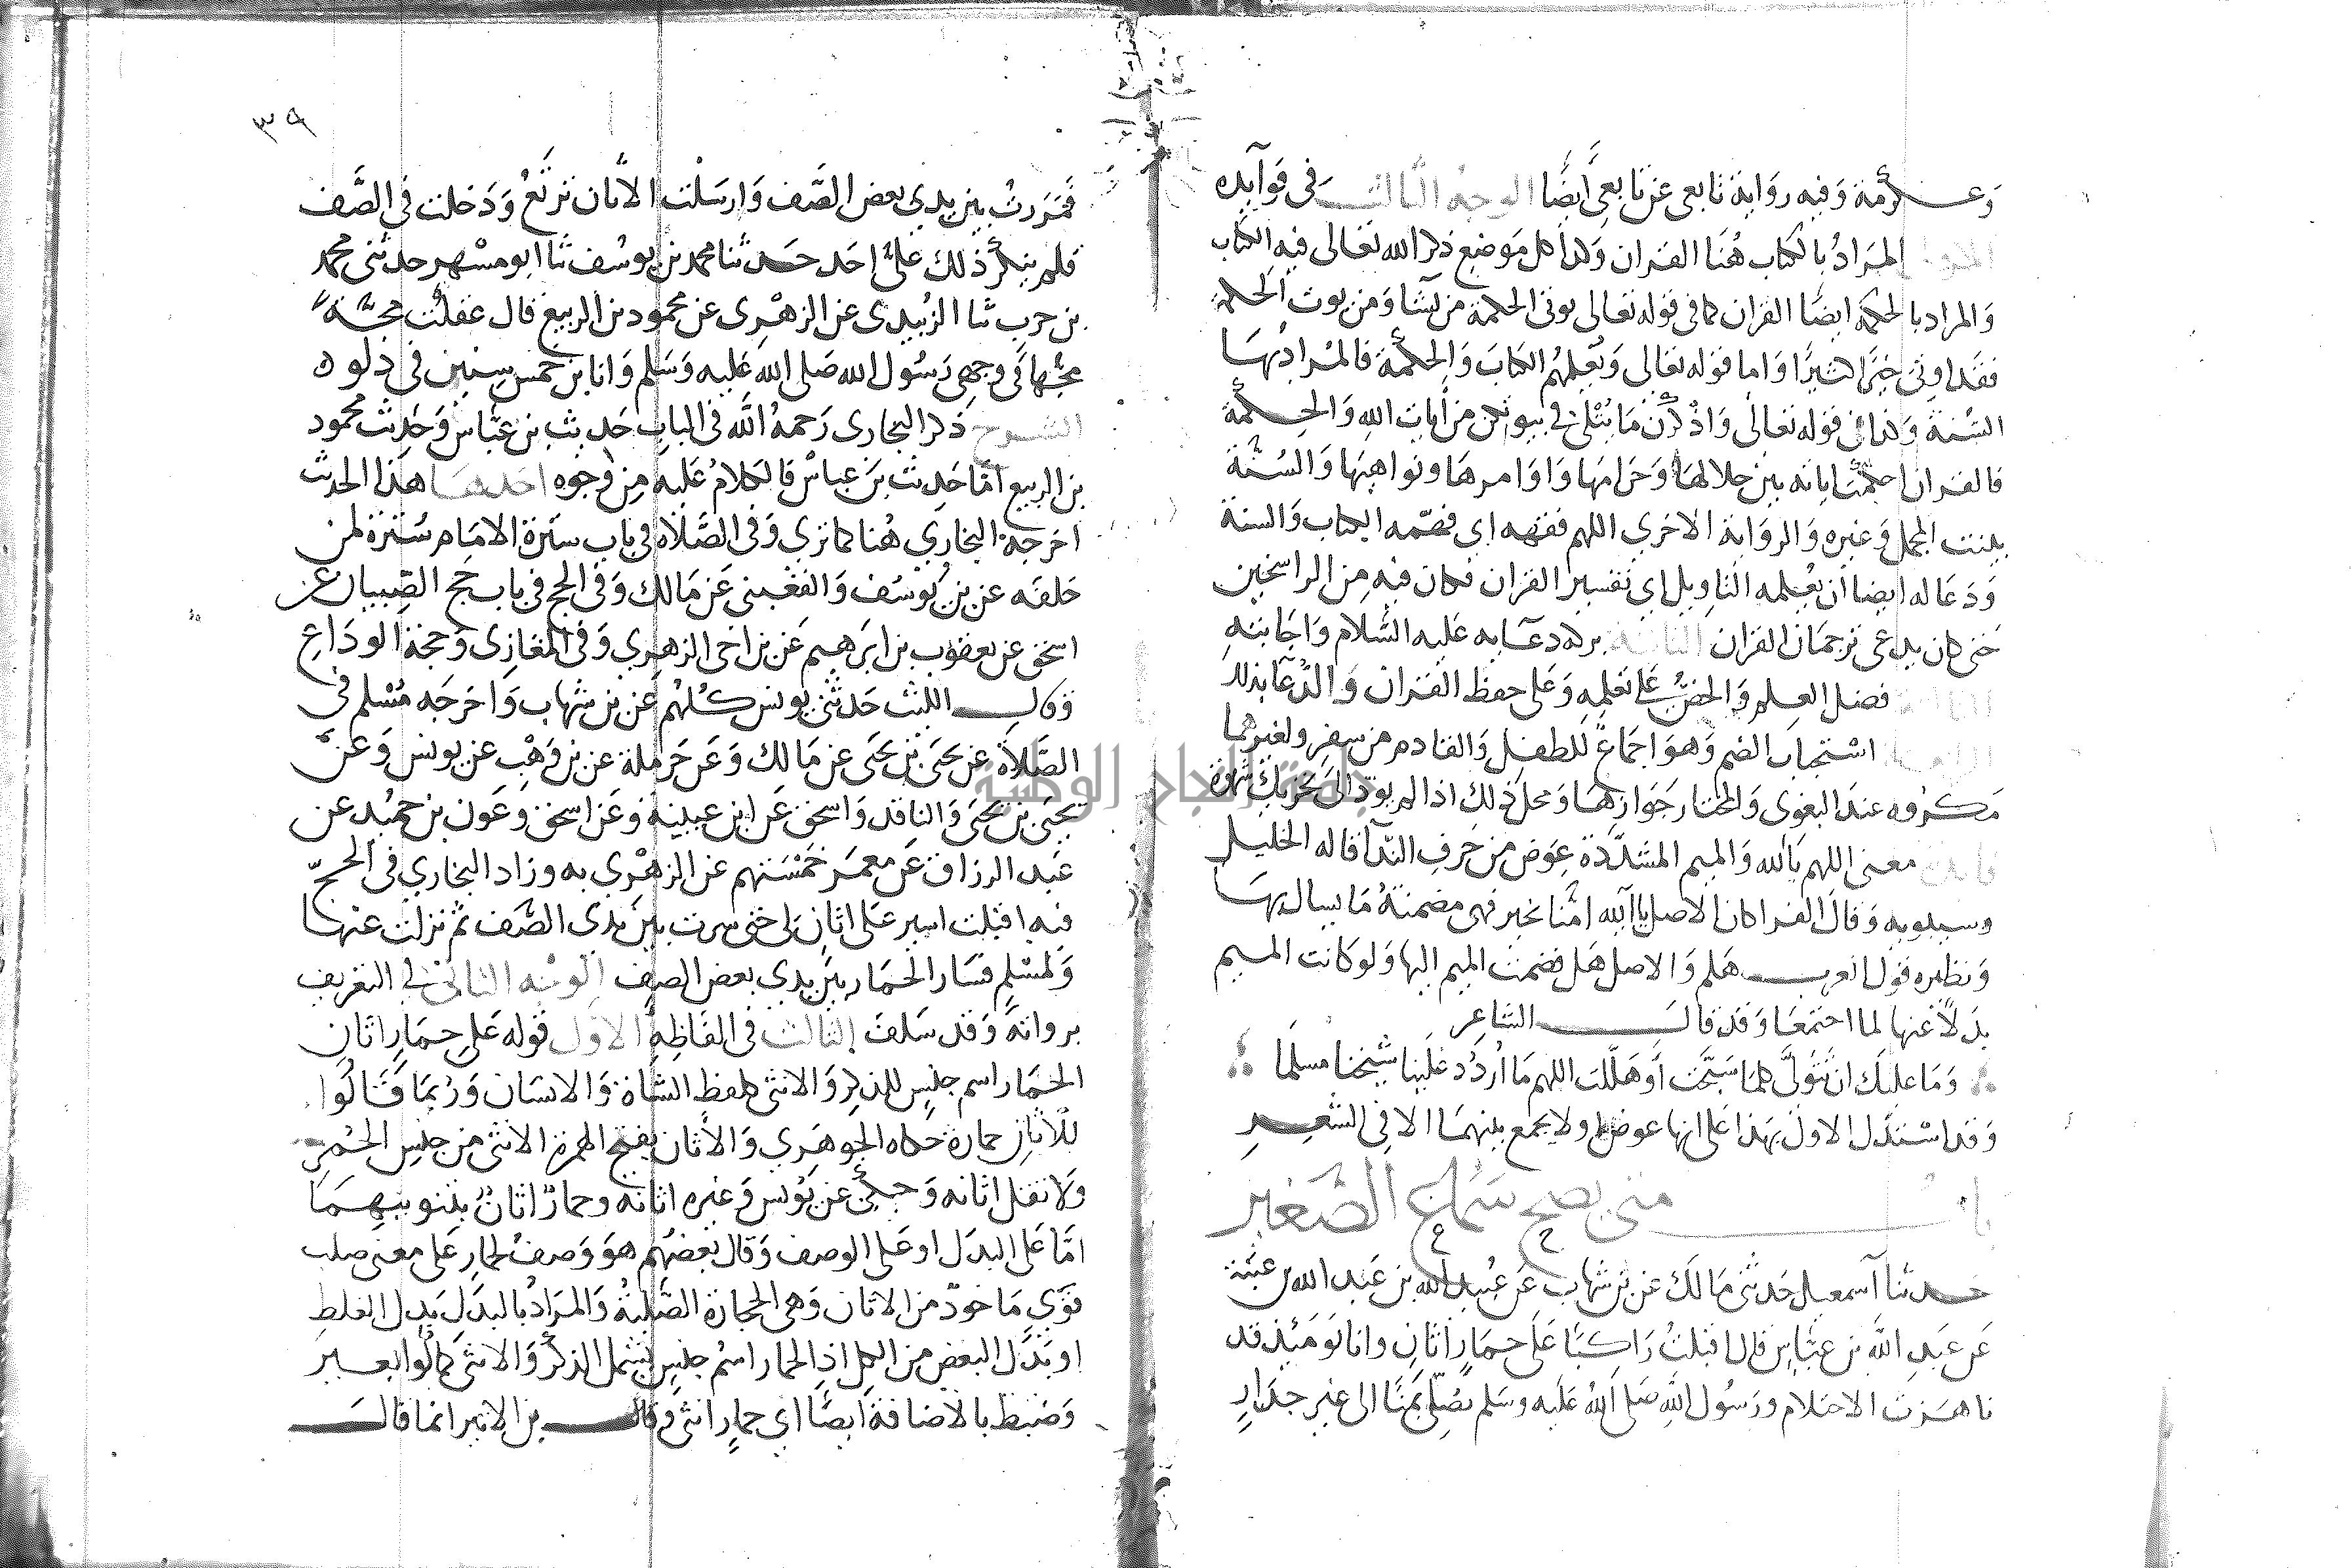 وعكرمة وفيه رواية تابعي عن تابعي أيضا الوجه الثالث في فوايده
المراد بالكتاب هنا القران وكذا كل موضع ذكر الله تعالى فيه الكتاب
والمراد بالحكمة ايضا القران كما في قوله تعالى يوتى الحكمة من يشا ومن يوت الحكمة
فقد اوتي خيرا كثيرا واما قوله تعالى ويعلمهم الكتاب والحكمة فالمراد بها
السنة وكذا في قوله تعالى واذكرن ما يتلى في بيوتكن من أيات الله والحكمة
فالقران احكمت اياته بين حلالها وحرامها واوامرها ونواهيها والسنة
بينت المجمل وغيره والرواية الاخرى اللهم فقهه اي فهمه الكتاب والسنة
ودعا له ايضا ان يعلمه التاويل اي تفسير القران فكان فيه من الراسخين
حتى كان يدعى ترجمان القران الثانية بركة دعايه عليه السلام واجابته
فضل العلم والحض على تعلمه وعلى حفظ القران والدعا بذلك
استحباب الضم وهو اجماع للطفل والقادم من سفر ولغيرهما
مكروه عند البغوى والمختار جوازها ومحل ذلك اذا لم يود الى تحريك شهوة
معنى اللهم يالله والميم المشددة عوض من حرف الندآ قاله الخليل
وسيبويه وقال الفرا كان الاصل ياالله امنا بخير فهي مضمنة ما يسال بها
ونظيره قول العرب هلم والاصل هل فضمت الميم اليها ولو كانت الميم
بدلا عنها لما اجتمعا وقد قال الشاعر
وما عليك ان تقولي كلما سبحت أو هللت اللهم ما أردد علينا شيخنا مسلما
وقد استدل الاول بهذا على انها عوض ولا يجمع بينهما الا في الشعر
باب متى يصح سماع الصغير
حدثنا آسمعيل حدثني مالك عن بن شهاب عن عبيد الله بن عبد الله بن عتبة
عن عبد الله بن عباس قال اقبلت راكبا على حمار أتان وانا يوميذ قد
ناهزت الاحتلام ورسول الله صلى الله عليه وسلم يصلي بمنا الى غير جدار
٣٩
فمررت بين يدي بعض الصف وارسلت الاتان ترتع ودخلت في الصف
فلم ينكر ذلك علي احد حدثنا محمد بن يوسف ثنا ابو مسهر حدثنى محمد
بن حرب ثنا الزبيدى عن الزهرى عن محمود بن الربيع قال عقلت مجة
مجها في وجهي رسول الله صلى الله عليه وسلم وانا بن خمس سنين في دلو ه
الشرح ذكر البخارى رحمه الله في الباب حديث بن عباس وحديث محمود
بن الربيع اما حديث بن عباس فالكلام عليه من وجوه احدها هذا الحديث
اخرجه البخاري هنا كما ترى وفي الصلاه في باب سترة الامام سترة لمن
خلفه عن بن يوسف والقعنبي عن مالك وفي الحج في باب حج الصبيان عن
اسحق عن يعقوب بن ابرهيم عن بن اخى الزهري وفي المغازى وحجة الوداع
وقال الليث حدثني يونس كلهم عن بن شهاب واخرجه مسلم في
الصلاة عن يحيى بن يحيى عن مالك وعن حرملة عن بن وهب عن يونس وعن
يحيى بن يحيى والناقد واسحق عن ابن عيينة وعن اسحق وعون بن حميد عن
عبد الرزاق عن معمر خمستهم عن الزهري به وزاد البخاري في الحج
فيه اقبلت اسير على اتان لى حتى سرت بين يدى الصف ثم نزلت عنها
ولمسلم فسار الحمار بين يدي بعض الصف الوجه الثاني في التعريف
برواته وقد سلف الثالث في الفاظه الاول قوله على حمار اتان
الحمار اسم جنس للذكر والانثى كلفظ الشاة والانسان وربما قالوا
للاتان حمارة حكاه الجوهري والاتان بفتح الهمزة الانثى من جنس الحمر
ولا تقل اتانه وحكي عن يونس وغيره اتانه وحمار اتان بتنوينهما
اما على البدل او على الوصف وقال بعضهم هو وصف لحمار على معنى صلب
قوي ماخوذ من الاتان وهي الحجارة الصلبة والمراد بالبدل بدل الغلط
او بدل البعض من الكل اذ الحمار اسم جنس يشمل الذكر والانثى كما قالوا بعير
وضبط بالاضافة ايضا اي حمار انثى وقال بن الاثير انما قال
جامعة النجاح الوطنية